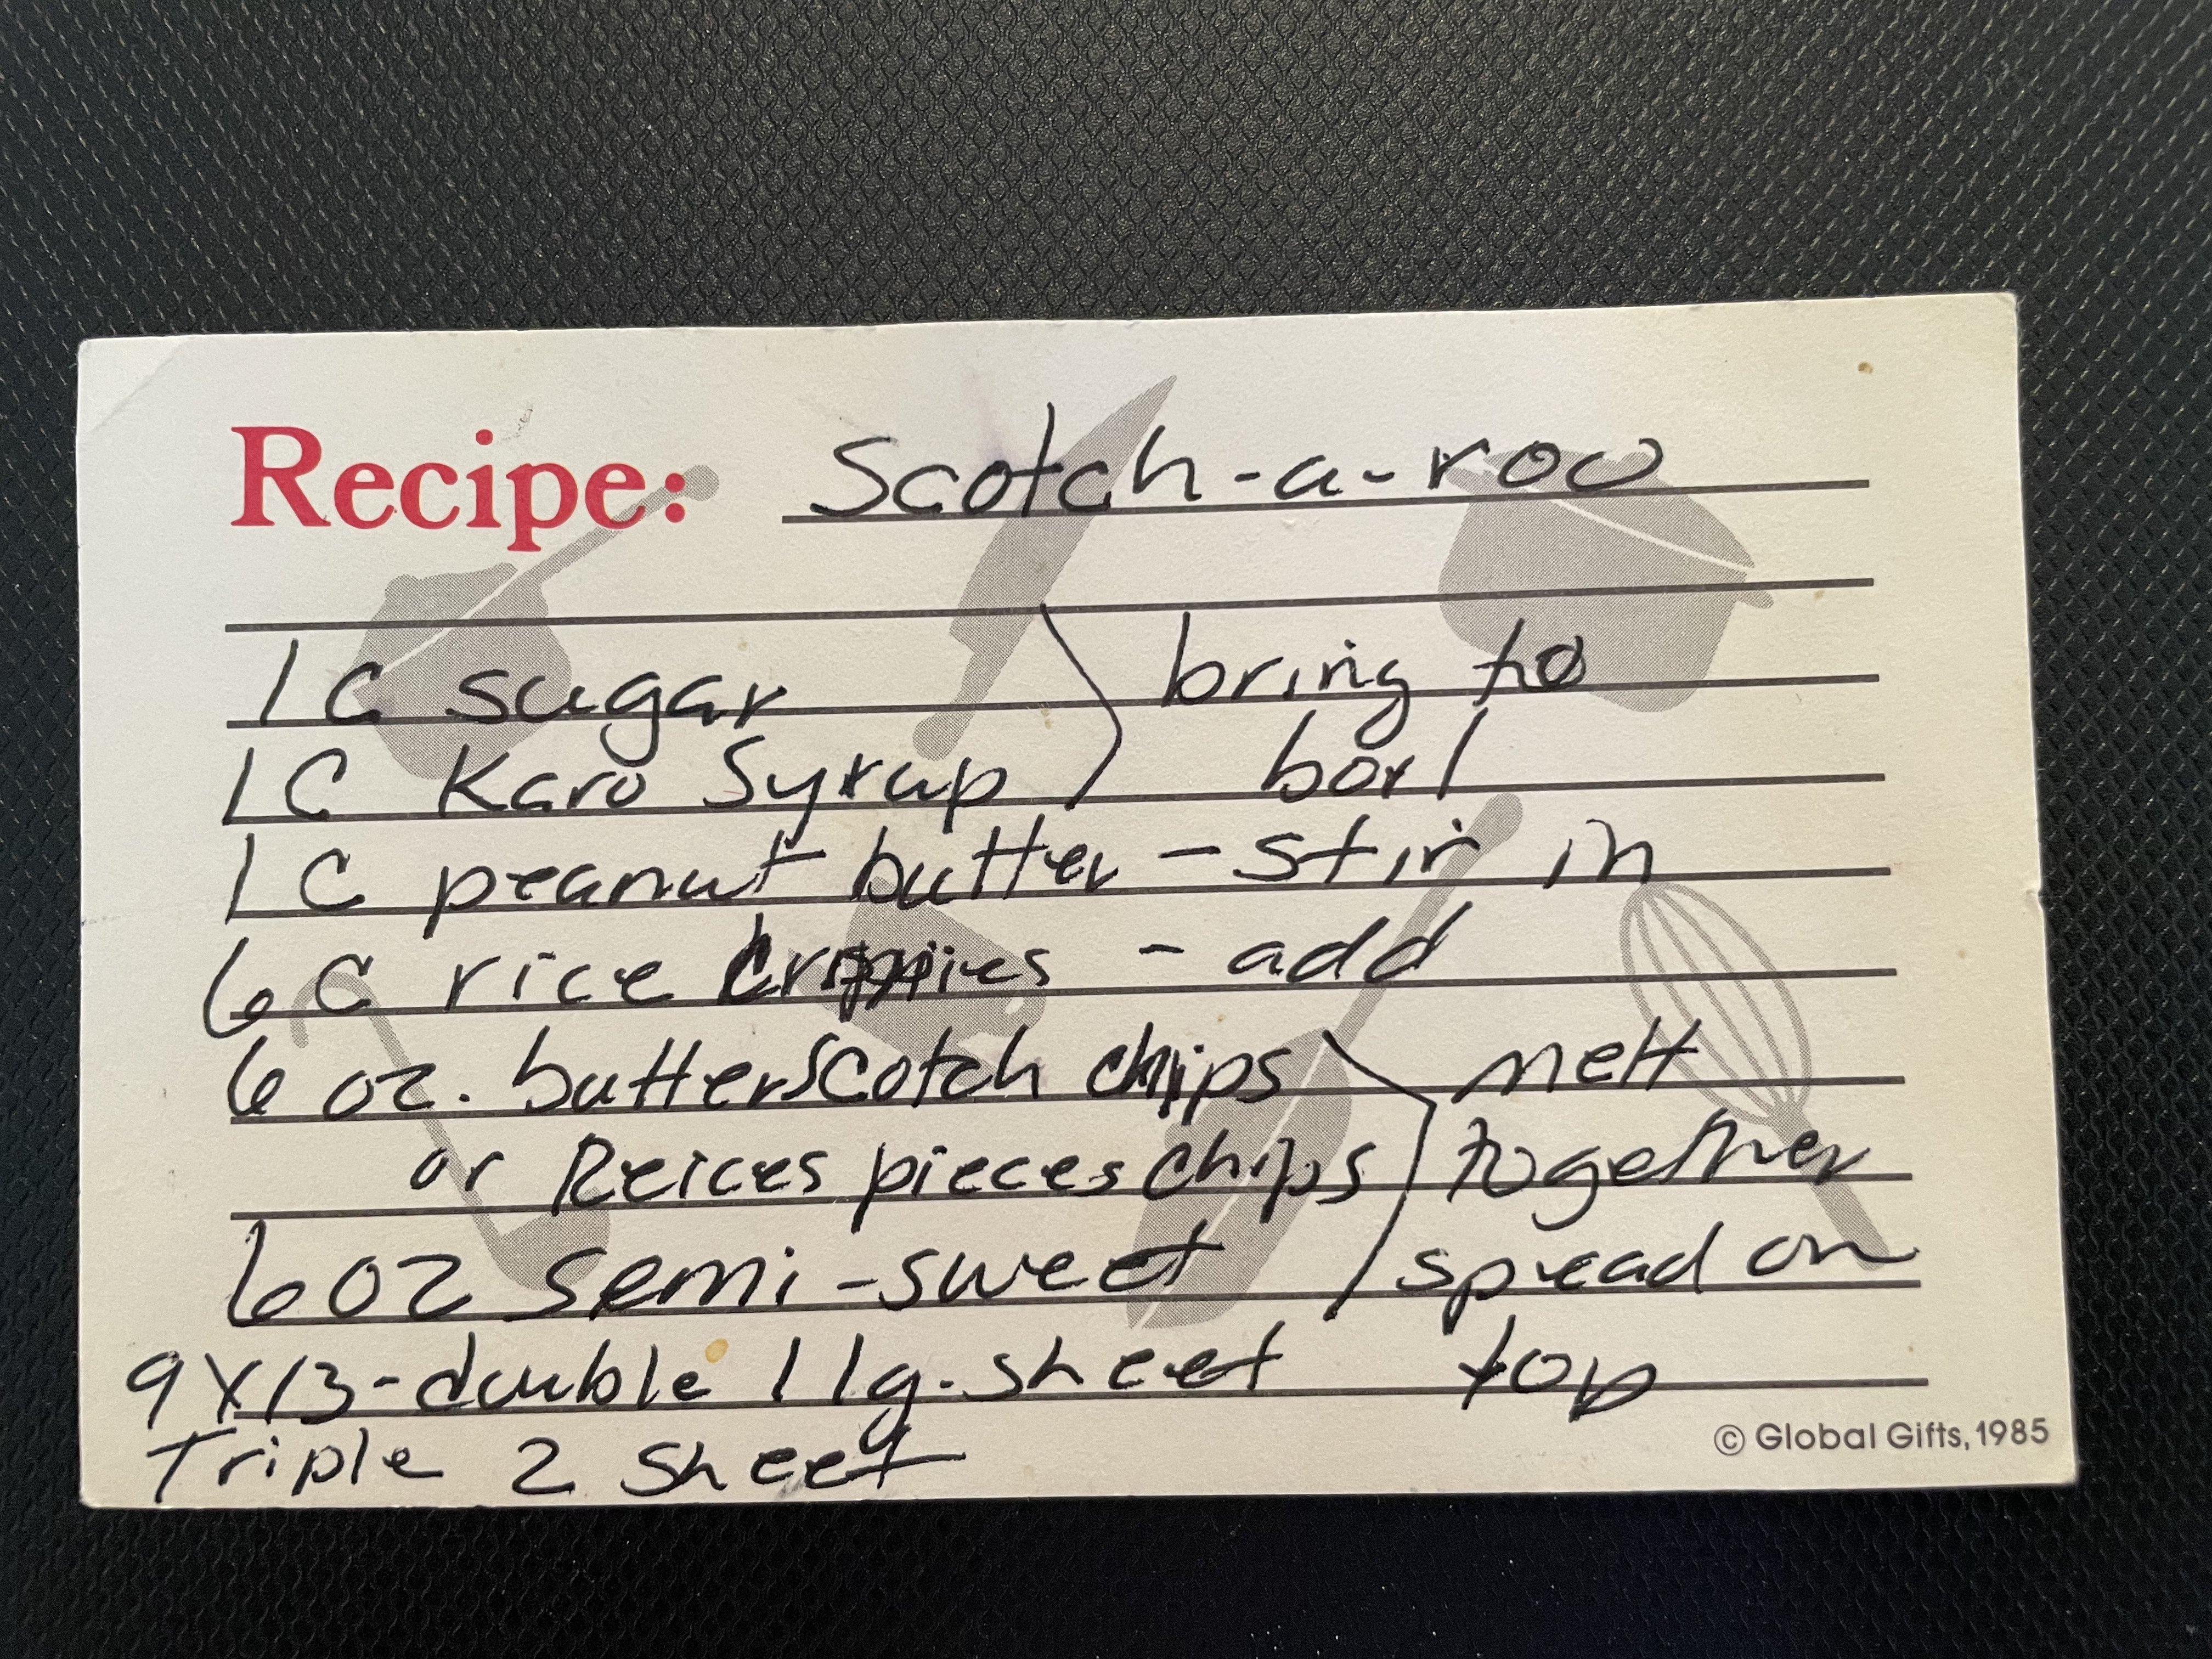 Recipe: Scotch-a-roo
1 C sugar bring to
1 C Karo Syrup boil
1 C peanut butter - stir in
6 C rice crispies - add
6 oz. butterscotch chips melt
or Reices pieces chips together
6 oz semi-sweet spread on
9X13-double 1 lg. sheet top
Triple 2 sheet
© Global Gifts, 1985